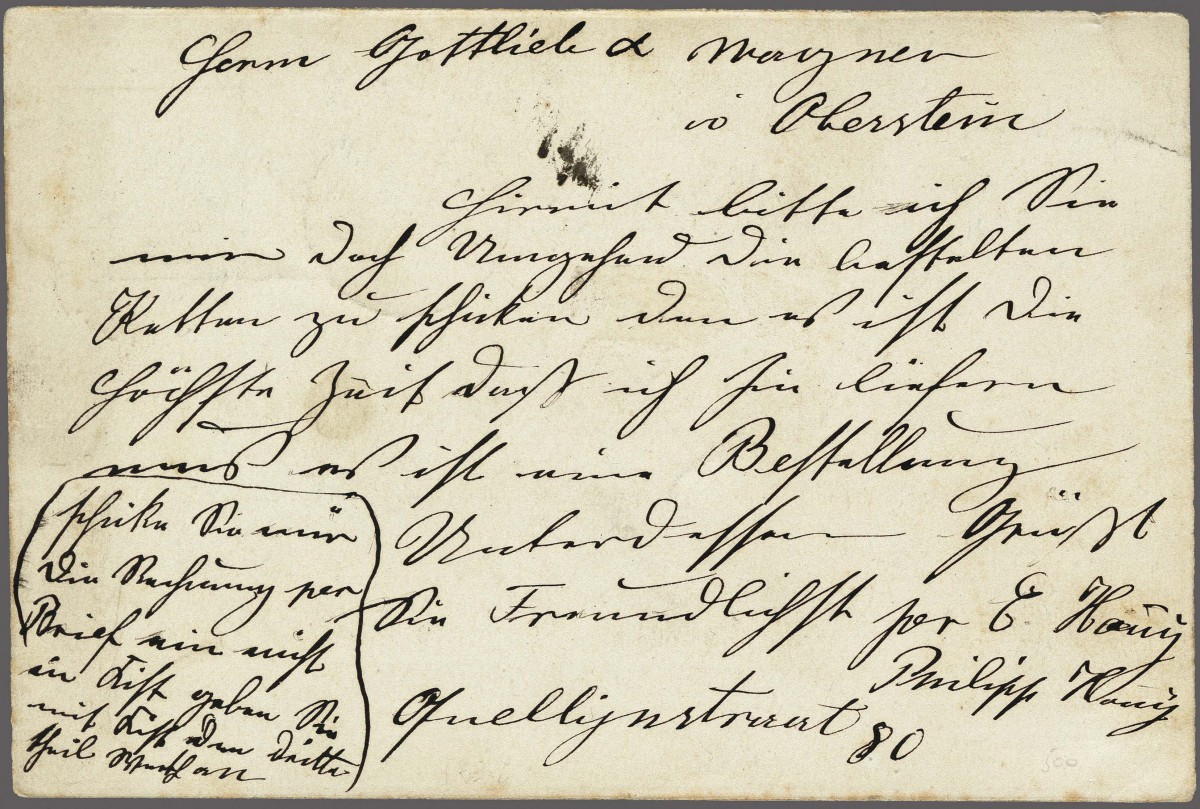 Herrn Gottlieb & Wagner
in Oberstein
Hirmit bitte ich Sie
mir doch Umgehend die bestelten
Ketten zu schicken den es ist die
höchste Zeit daß ich sie liefern
muß es ist eine Bestellung
Unterdessen Grüßt
Sie Freundlichst per E Hönig
Philipp Hönig
Quellijnstraat 80
schicke Sie mir
die Rechnung per
Brief ein nicht
in Kist geben Sie
mit Kist den dritte
theil Werth an